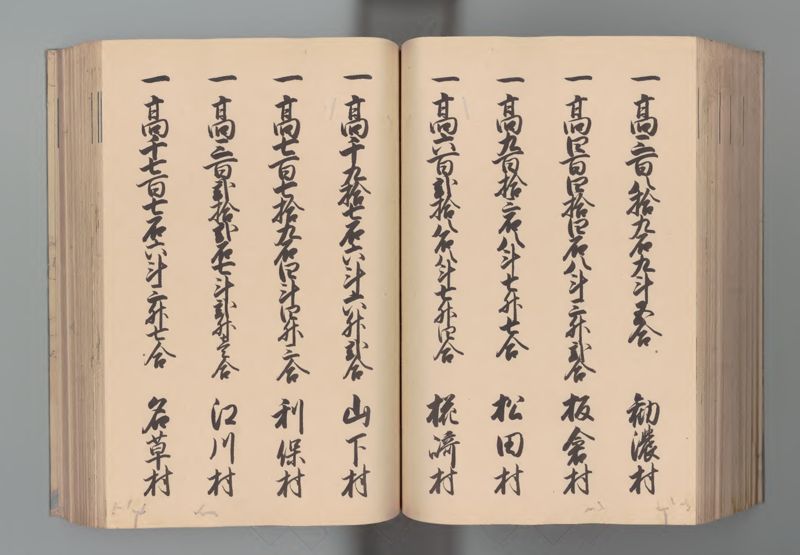 一高三百八拾九石九斗五合 勧濃村
一高四百四拾四石八斗三升弐合 板倉村
一高九百拾三石八斗七升七合 松田村
一高六百弐拾八石八斗七升四合 椛崎村
一高千九拾七石六斗六升弐合 山下村
一高七百七拾九石四斗四升三合 利保村
一高三百弐拾弐石七斗弐升壱合 江川村
一高千七百七石六斗三升七合 名草村